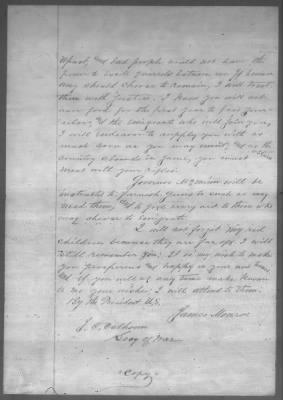 upset, & bad people will not have the
power to excite quarrels between us. If however
any should choose to remain, I will treat
them with justice. I hope you will not
need food for the first year to feed your-
selves, & the emigrants who will follow you.
I will endeavor to supply you with as
much corn as you may want, & as the
country abounds in game, you must
meat with your rifles.
Governor McMinn will be
instructed to furnish guns to such as may
need them, & to give every aid to those who
may choose to emigrate.
I will not forget my red
children because they are far off. I will
still remember you. It is my wish to make
you prosperous & happy in your new home,
& if you will at any time make known
to me your wishes, I will attend to them.
By the President U.S.
James Monroe
J. C. Calhoun
Secy of War
"Copy"